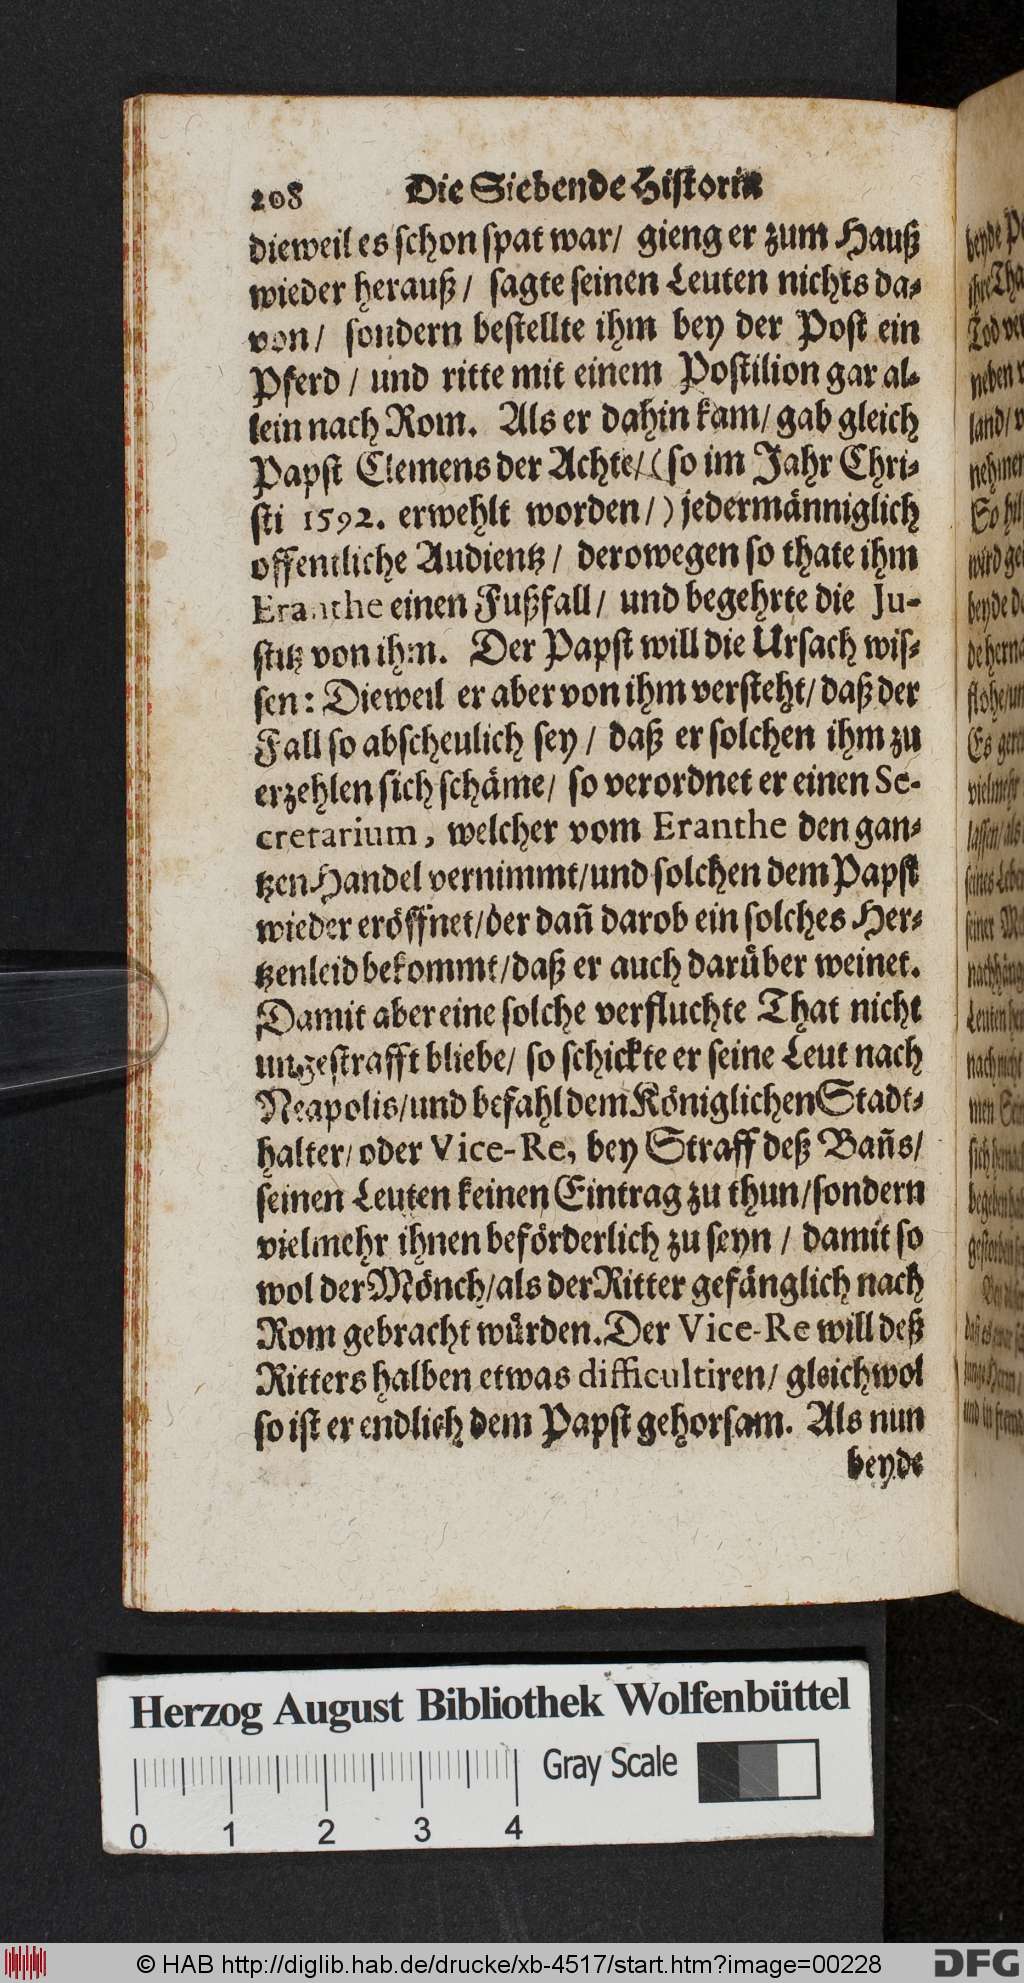 208 Die Siebende Histori
dieweil es schon spat war/ gieng er zum Hauß
wieder herauß/ sagte seinen Leuten nichts da-
von/ sondern bestellte ihm bey der Post ein
Pferd/ und ritte mit einem Postilion gar al-
lein nach Rom. Als er dahin kam/ gab gleich
Papst Clemens der Achte/ (so im Jahr Chri-
sti 1592. erwehlt worden/) jedermänniglich
offentliche Audientz/ derowegen so thate ihm
Eranthe einen Fußfall/ und begehrte die Ju-
stitz von ihm. Der Papst will die Ursach wis-
sen: Dieweil er aber von ihm versteht/ daß der
Fall so abscheulich sey/ daß er solchen ihm zu
erzehlen sich schäme/ so verordnet er einen Se-
cretarium, welcher vom Eranthe den gan-
tzen Handel vernimmt/und solchen dem Papst
wieder eröffnet/der dañ darob ein solches Her-
tzenleid bekommt/daß er auch darüber weinet.
Damit aber eine solche verfluchte That nicht
ungestrafft bliebe/ so schickte er seine Leut nach
Neapolis/und befahl dem Königlichen Stadt-
halter/ oder Vice-Re, bey Straff deß Bañs/
seinen Leuten keinen Eintrag zu thun/sondern
vielmehr ihnen beförderlich zu seyn/ damit so
wol der Mönch/als der Ritter gefänglich nach
Rom gebracht würden. Der Vice-Re will deß
Ritters halben etwas difficultiren/ gleichwol
so ist er endlich dem Papst gehorsam. Als nun
beyde
Herzog August Bibliothek Wolfenbüttel
Gray Scale
0 1 2 3 4
© HAB http://diglib.hab.de/drucke/xb-4517/start.htm?image=00228
DFG